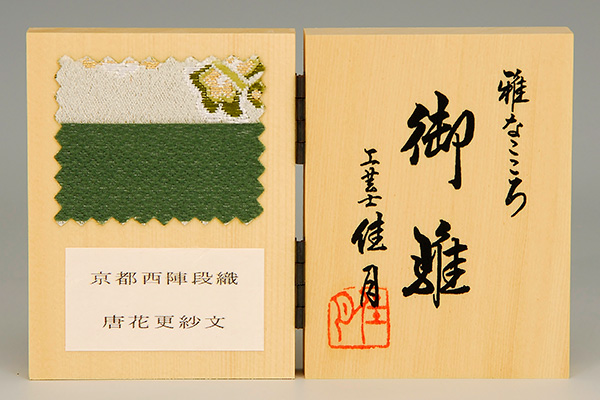 雅なこころ
御雛
工芸士 佳月
京都西陣段織
唐花更紗文